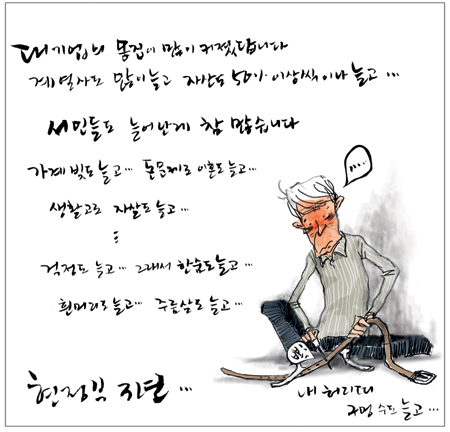 대기업의 몸집이 많이 커졌답니다
계열사도 많이 늘고 자산도 50% 이상씩이나 늘고 ...
서민들도 늘어난게 참 많습니다
가계 빚도 늘고... 돈문제로 이혼도 늘고...
생활고로 자살도 늘고...
⋮
걱정도 늘고... 그래서 한숨도 늘고...
흰머리도 늘고... 주름살도 늘고...
....
현정부 지난 ...
내 허리띠
구멍 수도 늘고 ...